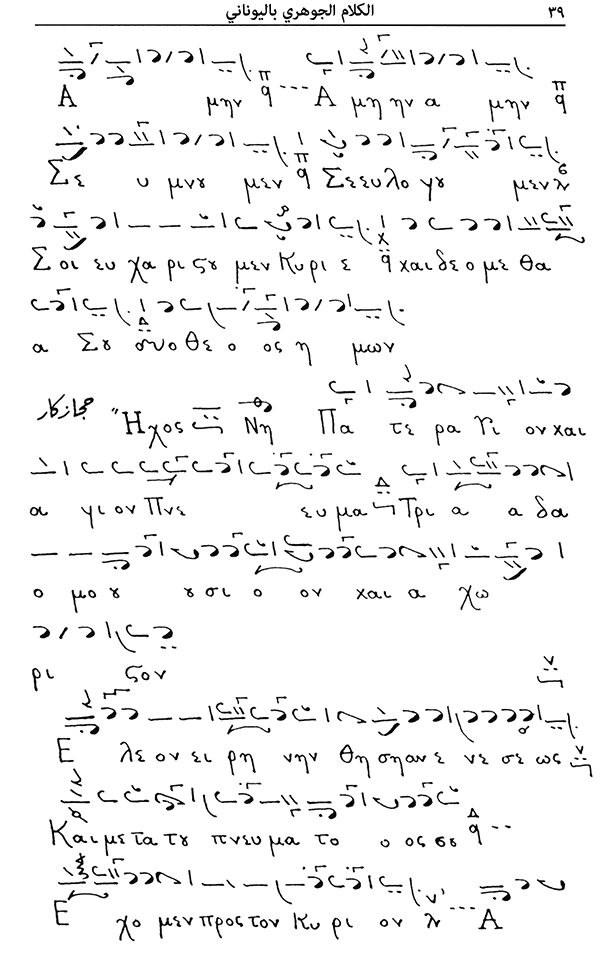 ٣٩ الكلام الجوهري باليوناني
Α μην Α μη η να μην
Σε υ μνου μεν Σε ευ λο γου μεν
Σοι ευ χα ρι ςου μεν Κυ ρι ε και δε ο με θα
α Σου ο Θε ο ος η μων
Ηχος Νη Πα τε ρα Υι ον και
حجازكار
α γι ον Πνε ευ μα Τρι α α δα
ο μο ου ου σι ο ον και α χω
ρι ςον
Ε λε ον ει ρη νην θη ση αν ε νε σε ως
Και με τα του πνευ μα το ο ος σου
Ε χο μεν προς τον Κυ ρι ον Α